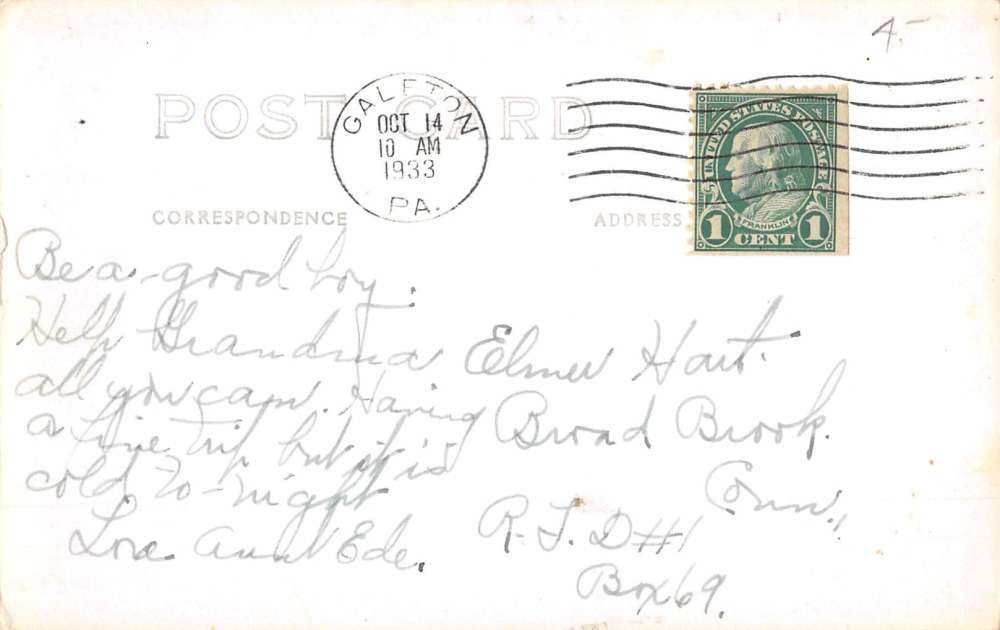 4.-
POST CARD
GALETON
OCT 14
10 AM
1933
PA.
UNITED STATES POSTAGE
FRANKLIN
1 CENT 1
CORRESPONDENCE
ADDRESS
Be a good boy.
Help Grandma
all you can. Having
a fine trip but it is
cold to-night
Love Aunt Ede.
Elmer Hart.
Broad Brook.
Conn.,
R.F.D #1
Box 69.